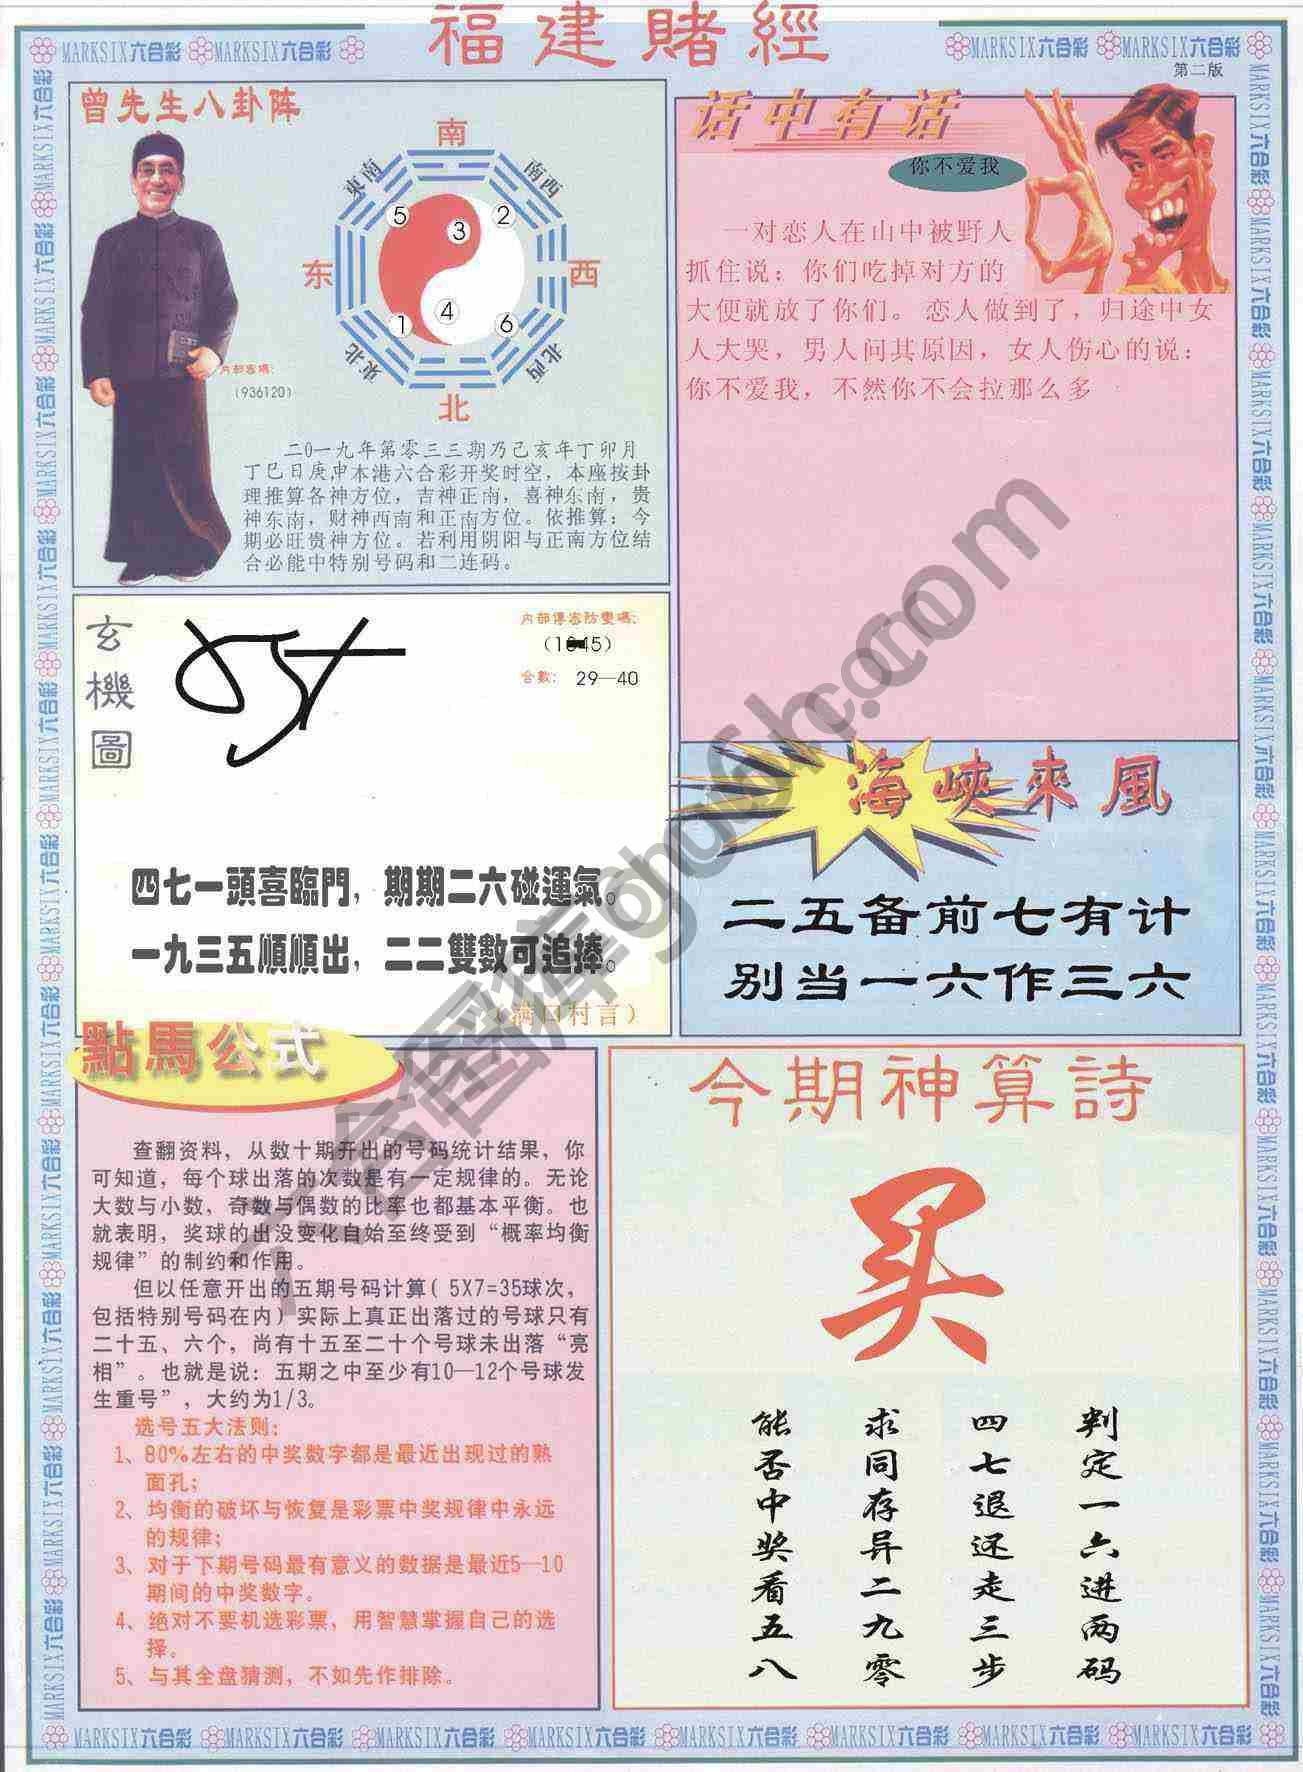 福建賭經
MARKSIX六合彩 MARKSIX六合彩
MARKSIX六合彩 MARKSIX六合彩
第二版
曾先生八卦阵
南
東南
南西
5
3
2
东
西
1
4
6
東北
北西
北
内部密碼:
(936120)
二0一九年第零三三期乃己亥年丁卯月
丁巳日庚申本港六合彩开奖时空，本座按卦
理推算各神方位，吉神正南，喜神东南，贵
神东南，财神西南和正南方位。依推算：今
期必旺贵神方位。若利用阴阳与正南方位结
合必能中特别号码和二连码。
话中有话
你不爱我
一对恋人在山中被野人
抓住说：你们吃掉对方的
大便就放了你们。恋人做到了，归途中女
人大哭，男人问其原因，女人伤心的说：
你不爱我，不然你不会拉那么多
玄機圖
内部傳密防變碼:
合數: 29—40
四七一頭喜臨門，期期二六碰運氣。
一九三五順順出，二二雙數可追捧。
（满口村言）
海峽來風
二五备前七有计
别当一六作三六
點馬公式
查翻资料，从数十期开出的号码统计结果，你
可知道，每个球出落的次数是有一定规律的。无论
大数与小数，奇数与偶数的比率也都基本平衡。也
就表明，奖球的出没变化自始至终受到“概率均衡
规律”的制约和作用。
但以任意开出的五期号码计算( 5X7=35球次，
包括特别号码在内)实际上真正出落过的号球只有
二十五、六个，尚有十五至二十个号球未出落“亮
相”。也就是说：五期之中至少有10—12个号球发
生重号”，大约为1/3。
选号五大法则:
1、80%左右的中奖数字都是最近出现过的熟
面孔;
2、均衡的破坏与恢复是彩票中奖规律中永远
的规律;
3、对于下期号码最有意义的数据是最近5—10
期间的中奖数字。
4、绝对不要机选彩票，用智慧掌握自己的选
择。
5、与其全盘猜测，不如先作排除。
今期神算詩
买
判定一六进两码
四七退还走三步
求同存异二九零
能否中奖看五八
MARKSIX六合彩 MARKSIX六合彩 MARKSIX六合彩 MARKSIX六合彩 MARKSIX六合彩 MARKSIX六合彩 MARKSIX六合彩 MARKSIX六合彩